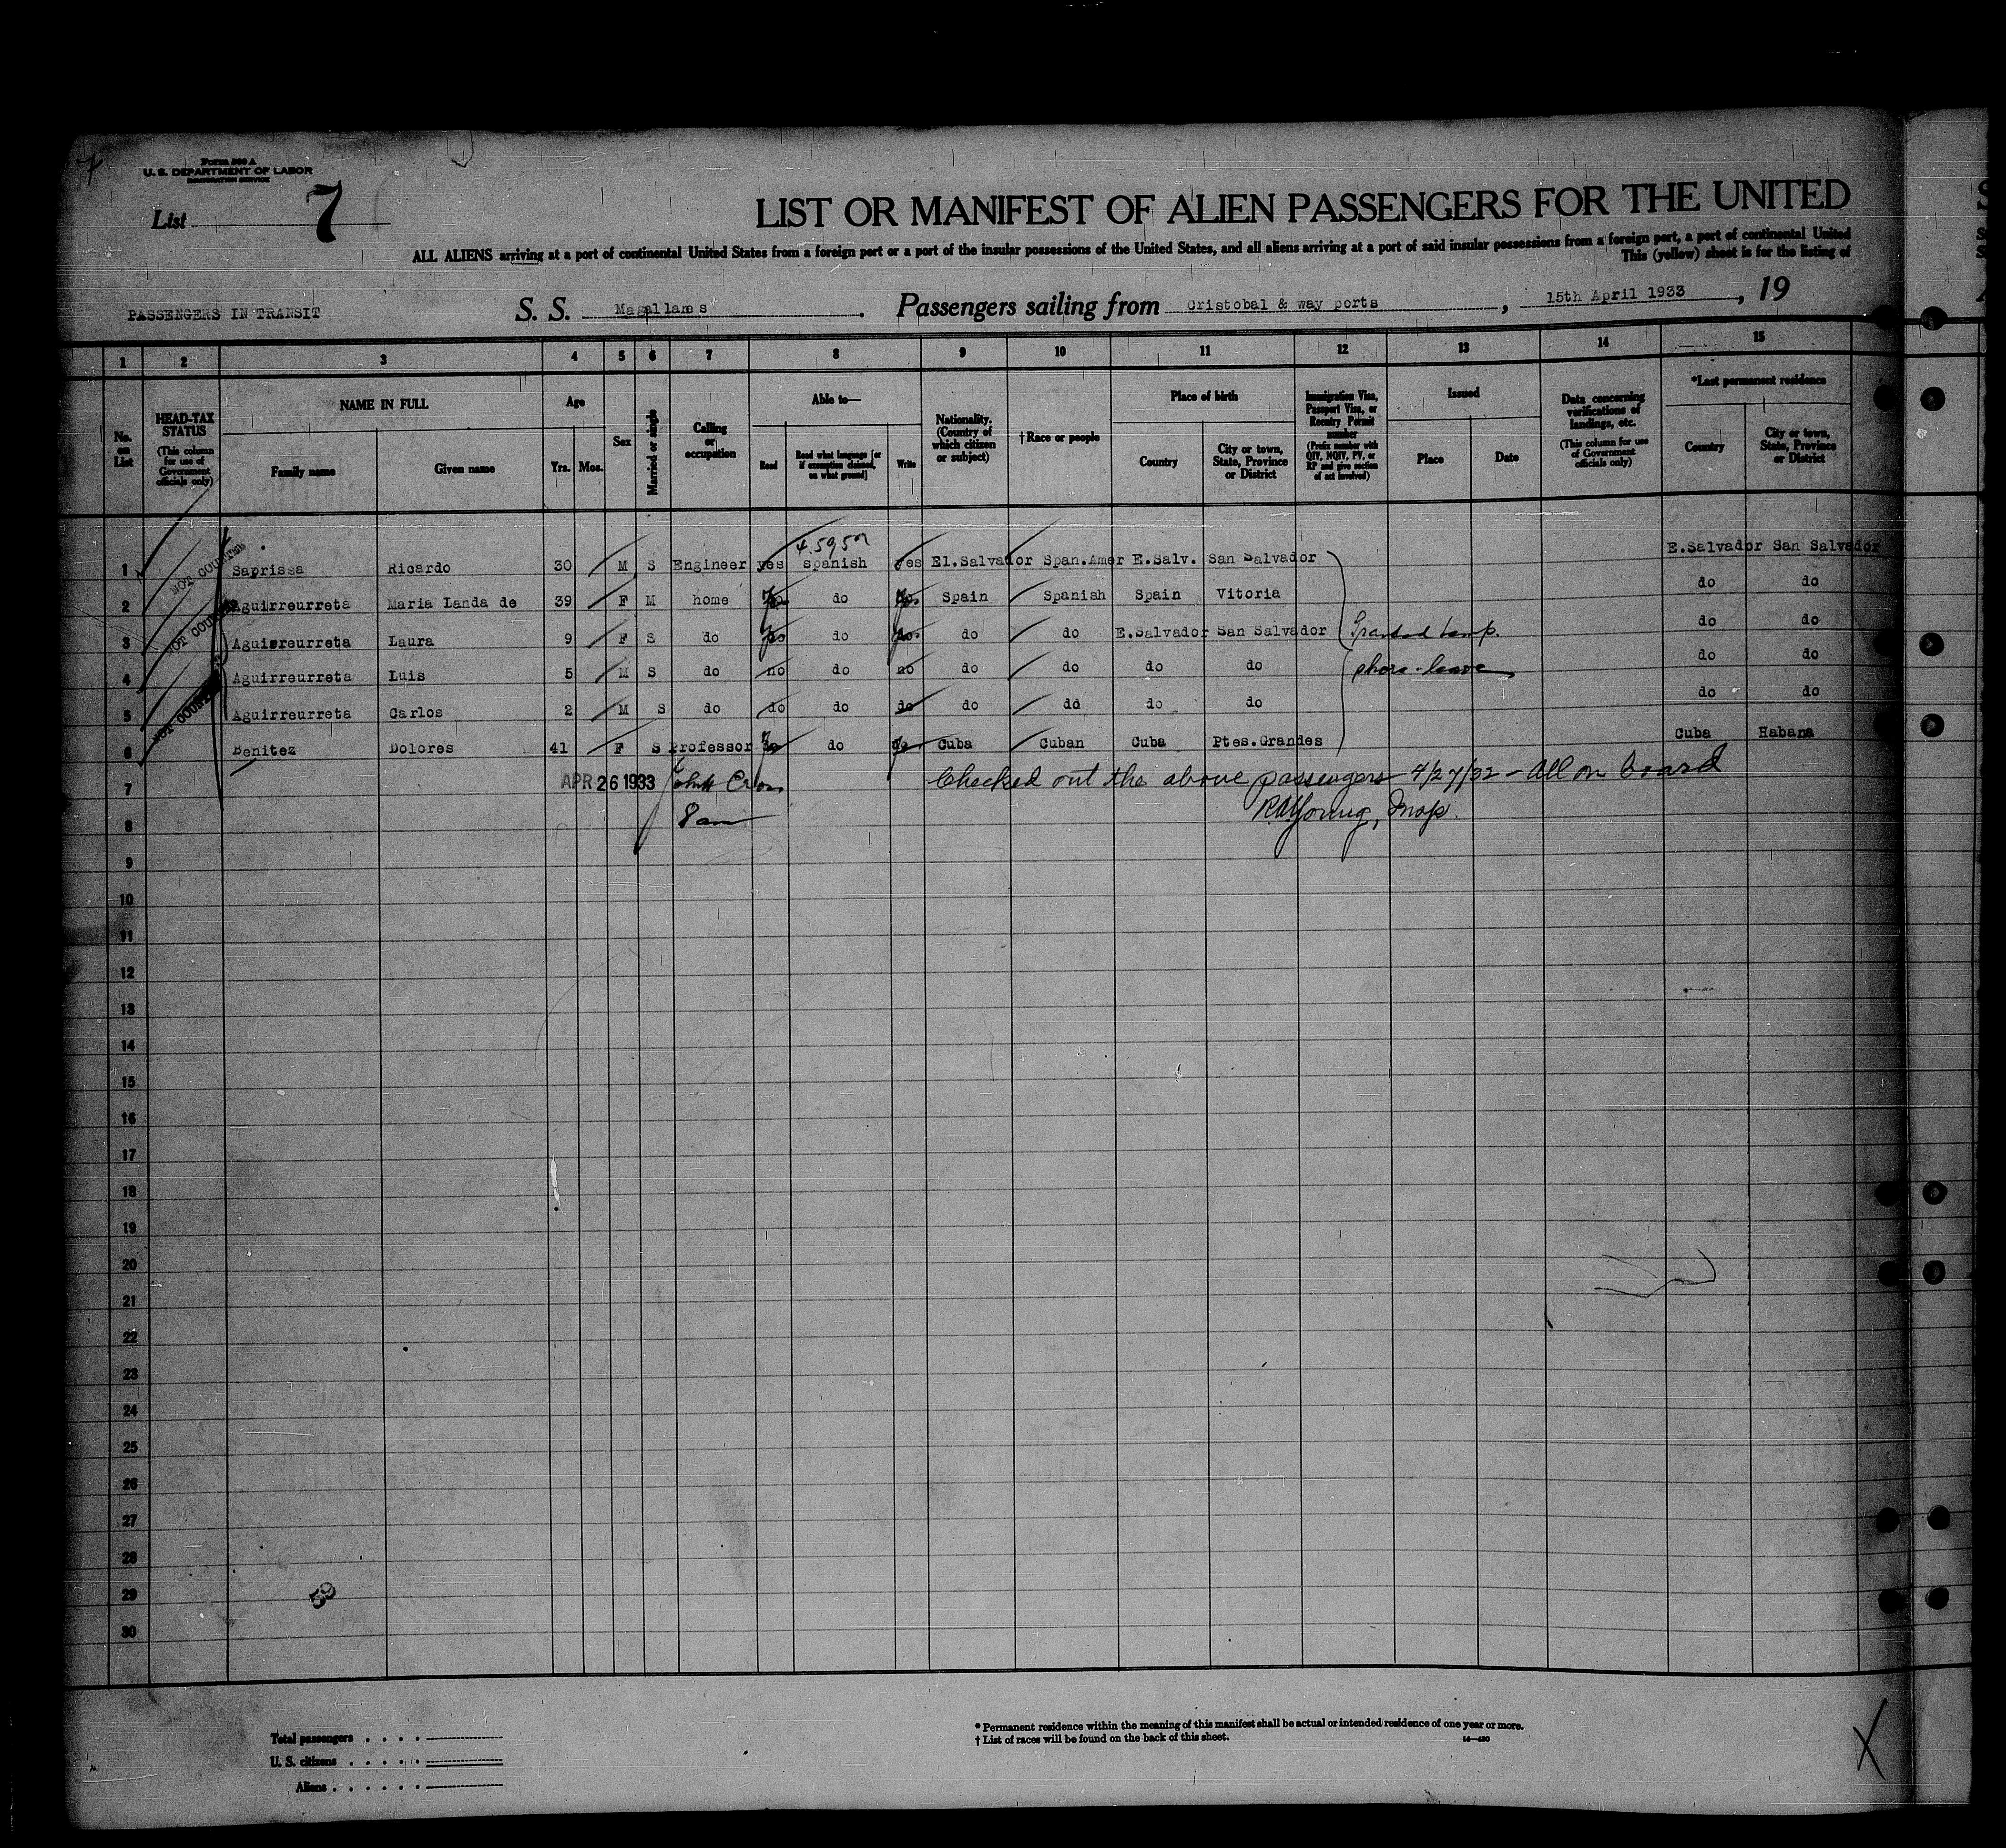 Form 500 A
U. S. DEPARTMENT OF LABOR
IMMIGRATION SERVICE
List 7
LIST OR MANIFEST OF ALIEN PASSENGERS FOR THE UNITED
ALL ALIENS arriving at a port of continental United States from a foreign port or a port of the insular possessions of the United States, and all aliens arriving at a port of said insular possessions from a foreign port, a port of continental United
This (yellow) sheet is for the listing of
PASSENGERS IN TRANSIT S. S. Magallanes. Passengers sailing from Cristobal & way ports, 15th April 1933, 19
1 2 3 4 5 6 7 8 9 10 11 12 13 14 15
No. on List
HEAD-TAX STATUS (This column for use of Government officials only)
NAME IN FULL
Family name Given name
Age
Yrs. Mos.
Sex
Married or single
Calling or occupation
Able to—
Read Read what language [or if exemption claimed, on what ground] Write
Nationality. (Country of which citizen or subject)
†Race or people
Place of birth
Country City or town, State, Province or District
Immigration Visa, Passport Visa, or Reentry Permit number (Prefix number with QIV, NQIV, PV, or RP and give section of act involved)
Issued
Place Date
Data concerning verifications of landings, etc. (This column for use of Government officials only)
*Last permanent residence
Country City or town, State, Province or District
1 NOT COUNTED Saprissa Ricardo 30 M S Engineer yes spanish yes El.Salvador Span.Amer E.Salv. San Salvador E.Salvador San Salvador
2 Aguirreurreta Maria Landa de 39 F M home do Spain Spanish Spain Vitoria do do
3 NOT COUNTED Aguirreurreta Laura 9 F S do do do do do E.Salvador San Salvador Granted temp. do do
4 Aguirreurreta Luis 5 M S do no do no do do do do shore-leave do do
5 NOT COUNTED Aguirreurreta Carlos 2 M S do do do do do do do do do do
6 Benitez Dolores 41 F S Professor do Cuba Cuban Cuba Ptes.Grandes Cuba Habana
7 APR 26 1933 Checked out the above passengers 4/27/32 - All on board
8 8 am RAYoung, Insp.
9
10
11
12
13
14
15
16
17
18
19
20
21
22
23
24
25
26
27
28
29
30
Total passengers
U. S. citizens
Aliens
* Permanent residence within the meaning of this manifest shall be actual or intended residence of one year or more.
† List of races will be found on the back of this sheet.
14—430